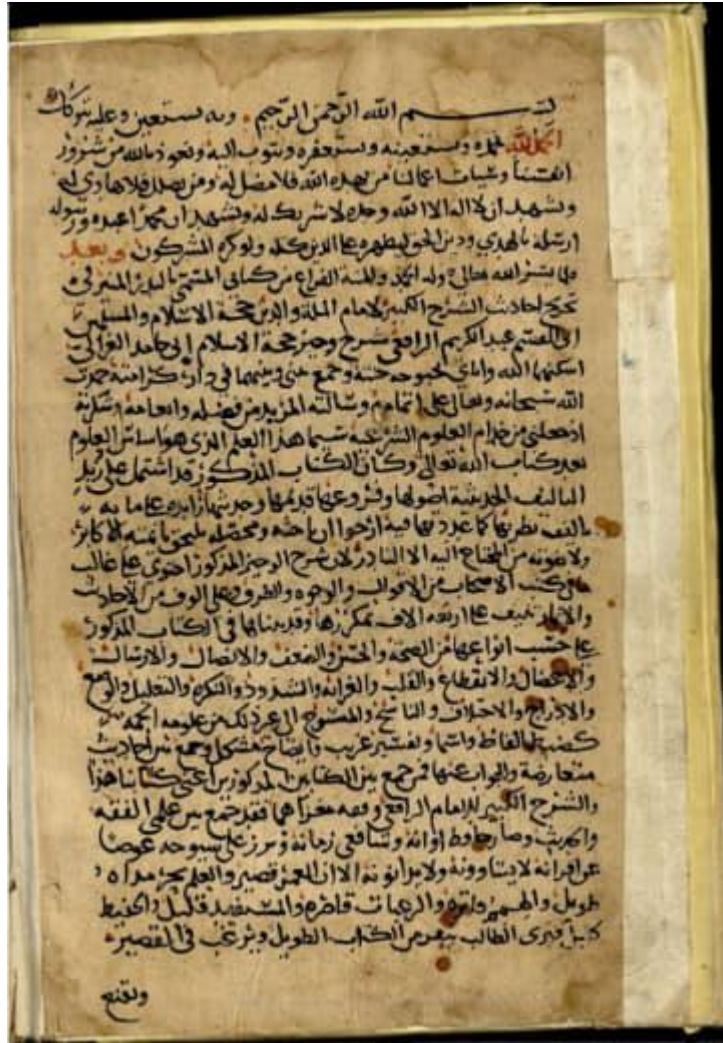 بسم الله الرحمن الرحيم وبه نستعين وعليه نتوكل
الحمد لله نحمده ونستعينه ونستغفره ونتوب اليه ونعوذ بالله من شرور
انفسنا وسيات اعمالنا من يهده الله فلا مضل له ومن يضلل فلا هادي له
ونشهد ان لا اله الا الله وحده لا شريك له ونشهد ان محمدا عبده ورسوله
ارسله بالهدي ودين الحق ليظهره على الدين كله ولو كره المشركون وبعد
يسر الله تعالى وله الحمد والمنة الفراغ من كتابي المسمى بالبدر المنير في
تخريج احاديث الشرح الكبير لامام الملة والدين حجة الاسلام والمسلمين
ابي القسم عبد الكريم الرافعي شرح وجيز حجة الاسلام ابي حامد الغزالي
اسكنهما الله واياي بحبوحة جنته وجمع بيني وبينهما في دار كرامته حمدت
الله سبحانه وتعالى على اتمامه وسالته المزيد من فضله وانعامه وشكرته
اذ جعلني من خدام العلوم الشرعية سيما هذا العلم الذي هو اساس العلوم
بعد كتاب الله تعالى وكان الكتاب المذكور قد اشتمل على زبد
التاليف الحديثية اصولها وفروعها قديمها وحديثها زايدة على ماية
تاليف نظرتها كما عددتها فيه ارجوا ان باحثه ومحصله يلتحق بايمته الاكابر
ولا يفوته من المحتاج اليه الا النادر لان شرح الوجيز المذكور احتوى على غالب
ما في كتب الاصحاب من الاقوال والوجوه والطرق وعلى الوف من الاحاديث
والاثار تنيف على اربعة الاف بمكررها وقد بيناها في الكتاب المذكور
على حسب انواعها من الصحة والحسن والضعف والاتصال والارسال
والاعضال والانقطاع والقلب والغرابة والشذوذ والنكرة والتعليل والوضع
والادراج والاختلاف والناسخ والمنسوخ الى غير ذلك من علومه الجمة
كضبط الفاظ واسما وتفسير غريب وايضاح مشكل وجمع بين احاديث
متعارضة والجواب عنها فمن جمع بين الكتابين المذكورين اعني كتابنا هذا
والشرح الكبير للامام الرافعي وفهم مغزاهما فقد جمع بين علمي الفقه
والحديث وصار حافظ اوانه وشافعي زمانه وبرز على شيوخه عوضا
عن اقرانه لا يساوونه ولا يدانونه الا ان العمر قصير والعلم بحر مداه
طويل والهمم فاترة والرغبات قاصرة والمستفيد قليل والحفيظ
كليل فترى الطالب ينفر من الكتاب الطويل ويرغب في القصير
ويقنع